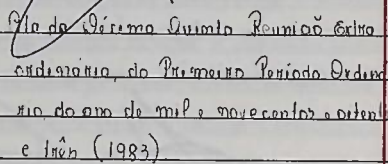 Ata da Décima Quinta Reunião Extra
ordinária, do Primeiro Período Ordiná
rio do ano de mil e novecentos e oitent
e três (1983)